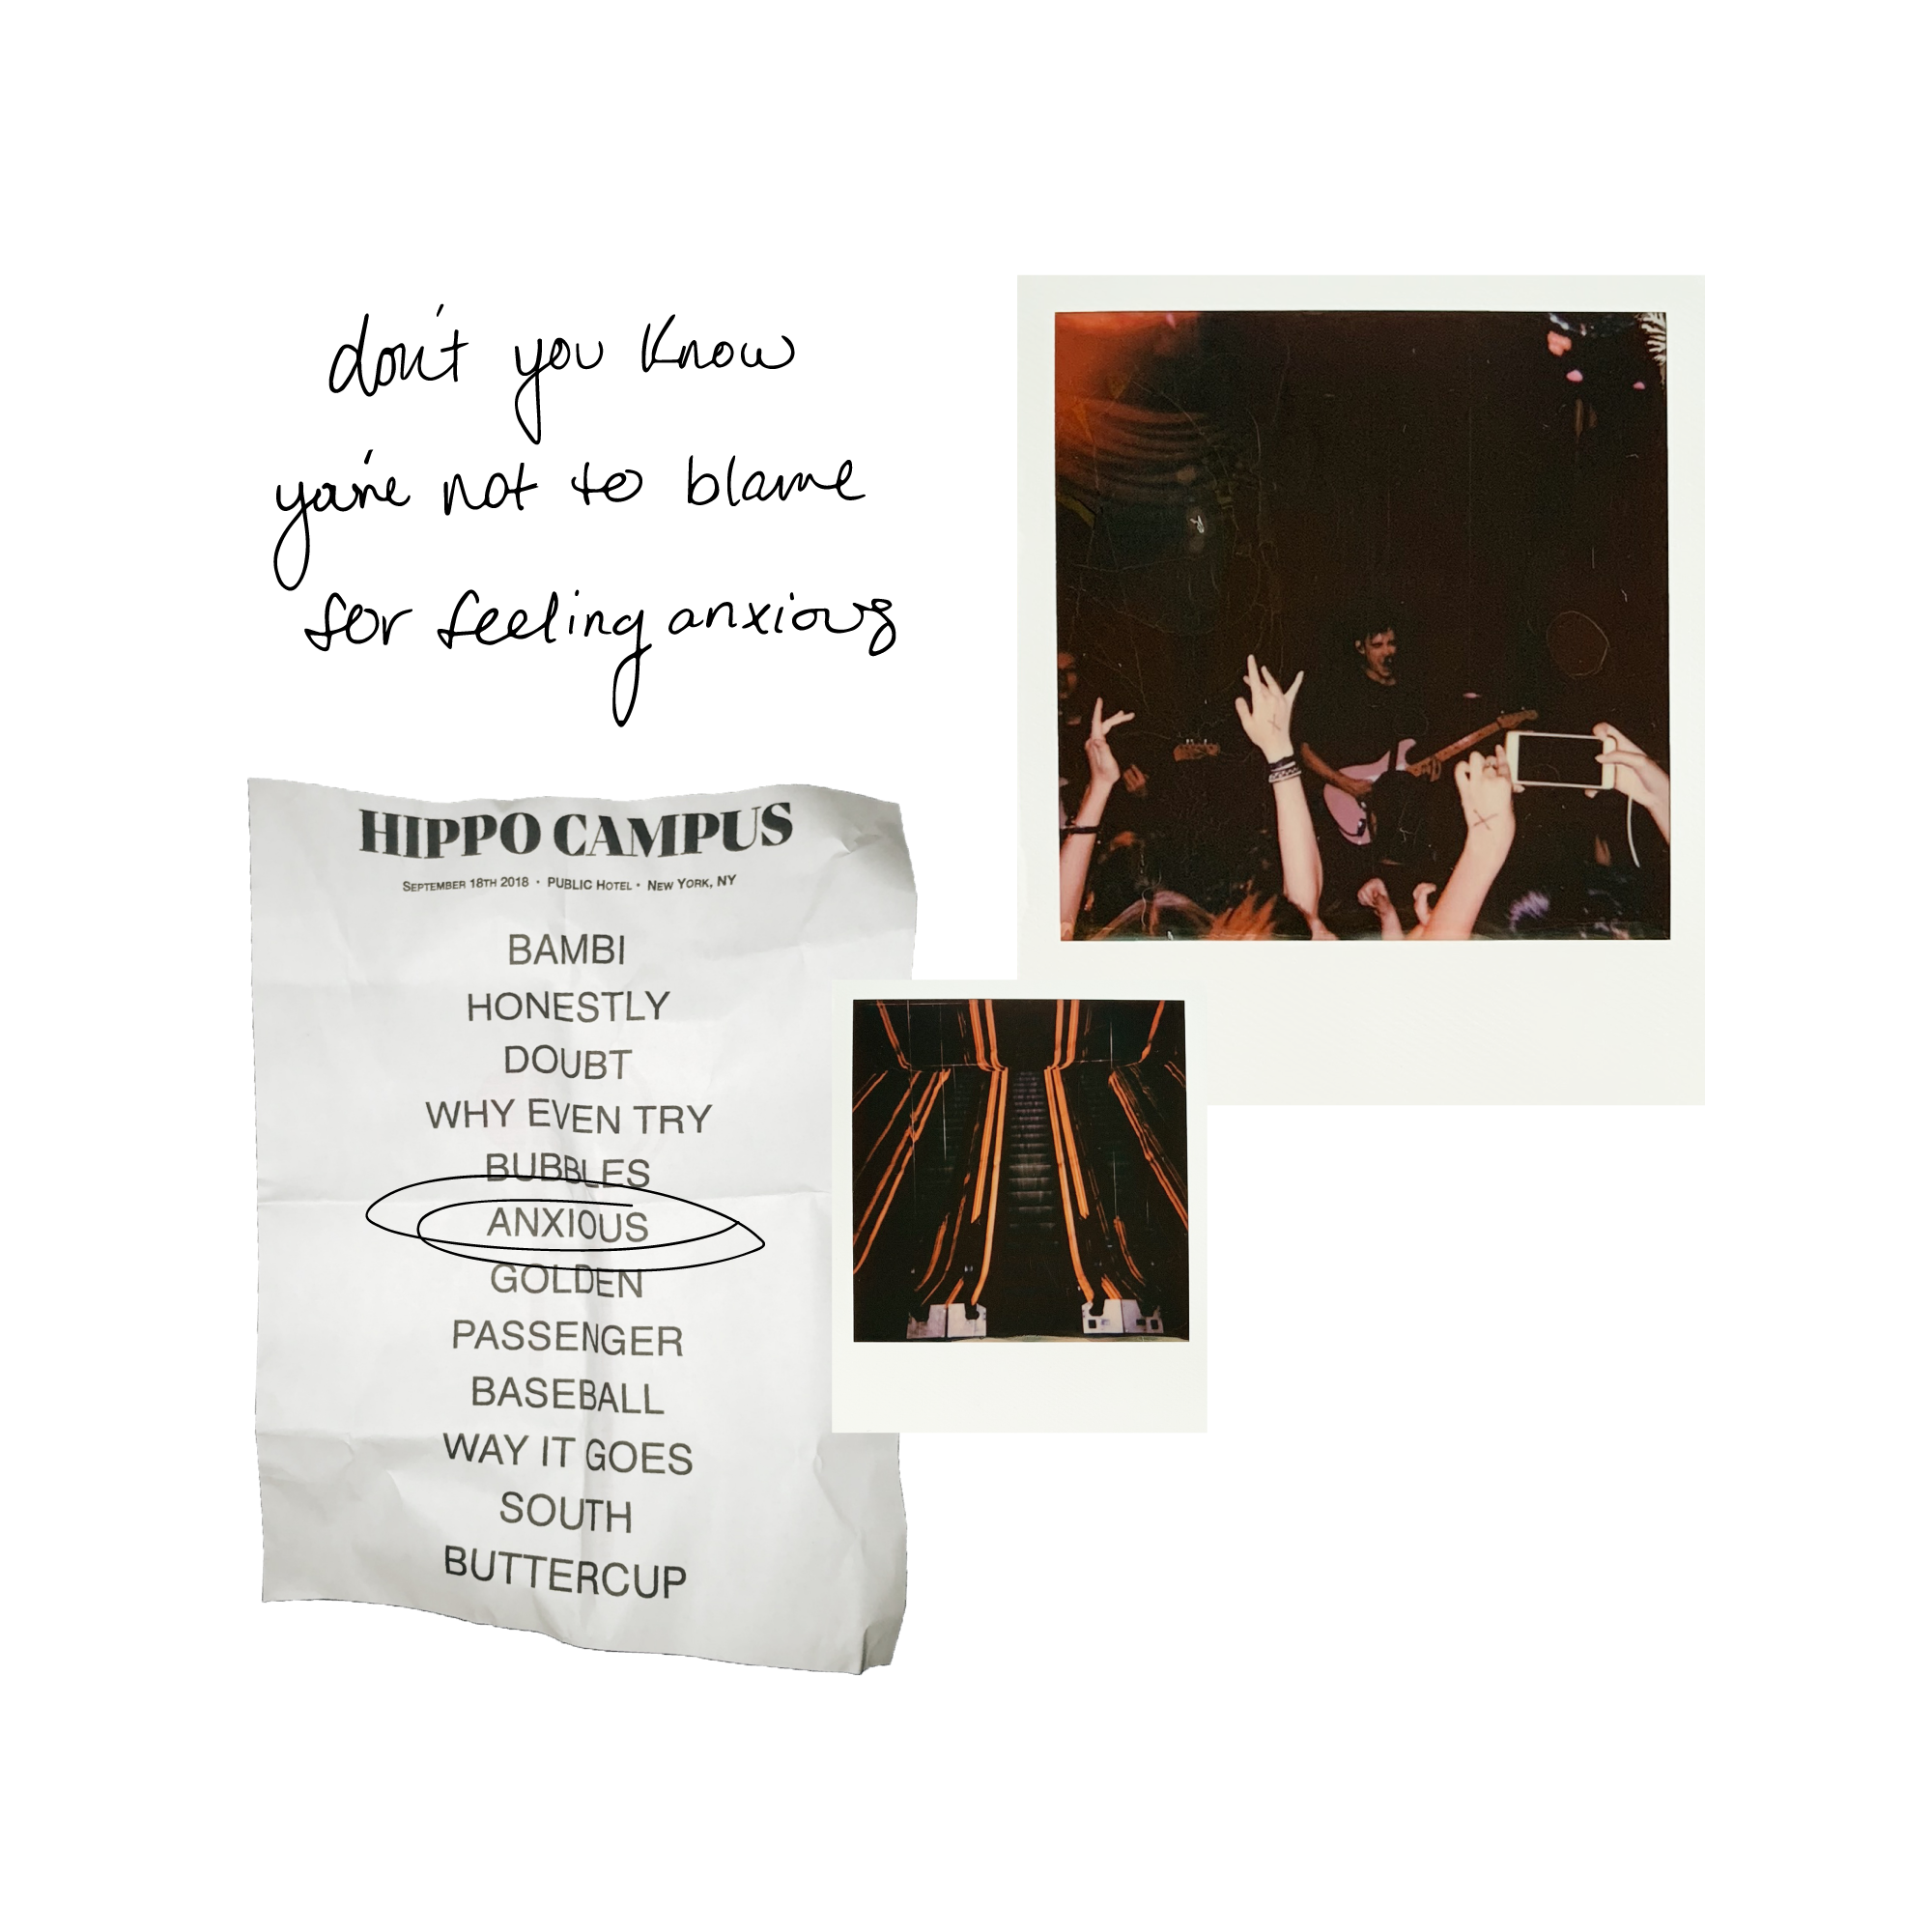 don't you know
you're not to blame
for feeling anxious
HIPPO CAMPUS
SEPTEMBER 18TH 2018 · PUBLIC HOTEL · NEW YORK, NY
BAMBI
HONESTLY
DOUBT
WHY EVEN TRY
BUBBLES
ANXIOUS
GOLDEN
PASSENGER
BASEBALL
WAY IT GOES
SOUTH
BUTTERCUP